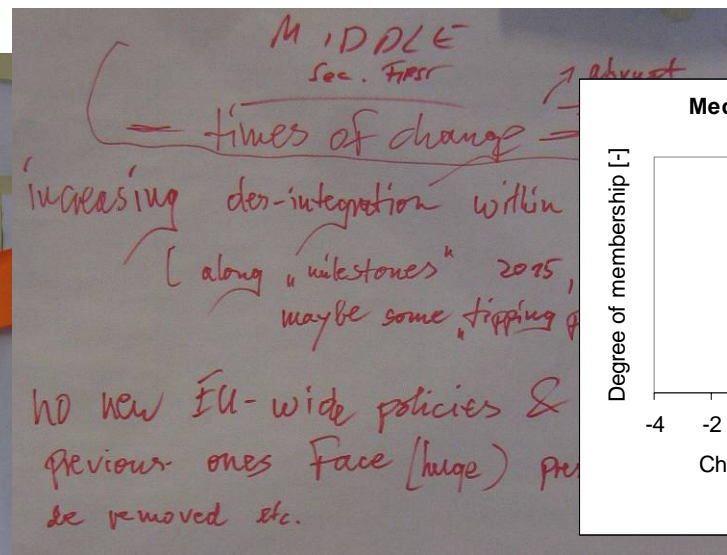 MIDDLE
Sec. First
abrupt
= times of change =
increasing des-integration within
[ along "milestones" 2015,
maybe some "tipping p
no new EU-wide policies &
previous ones Face (huge) pres
be removed etc.
Med
Degree of membership [-]
-4 -2
Ch